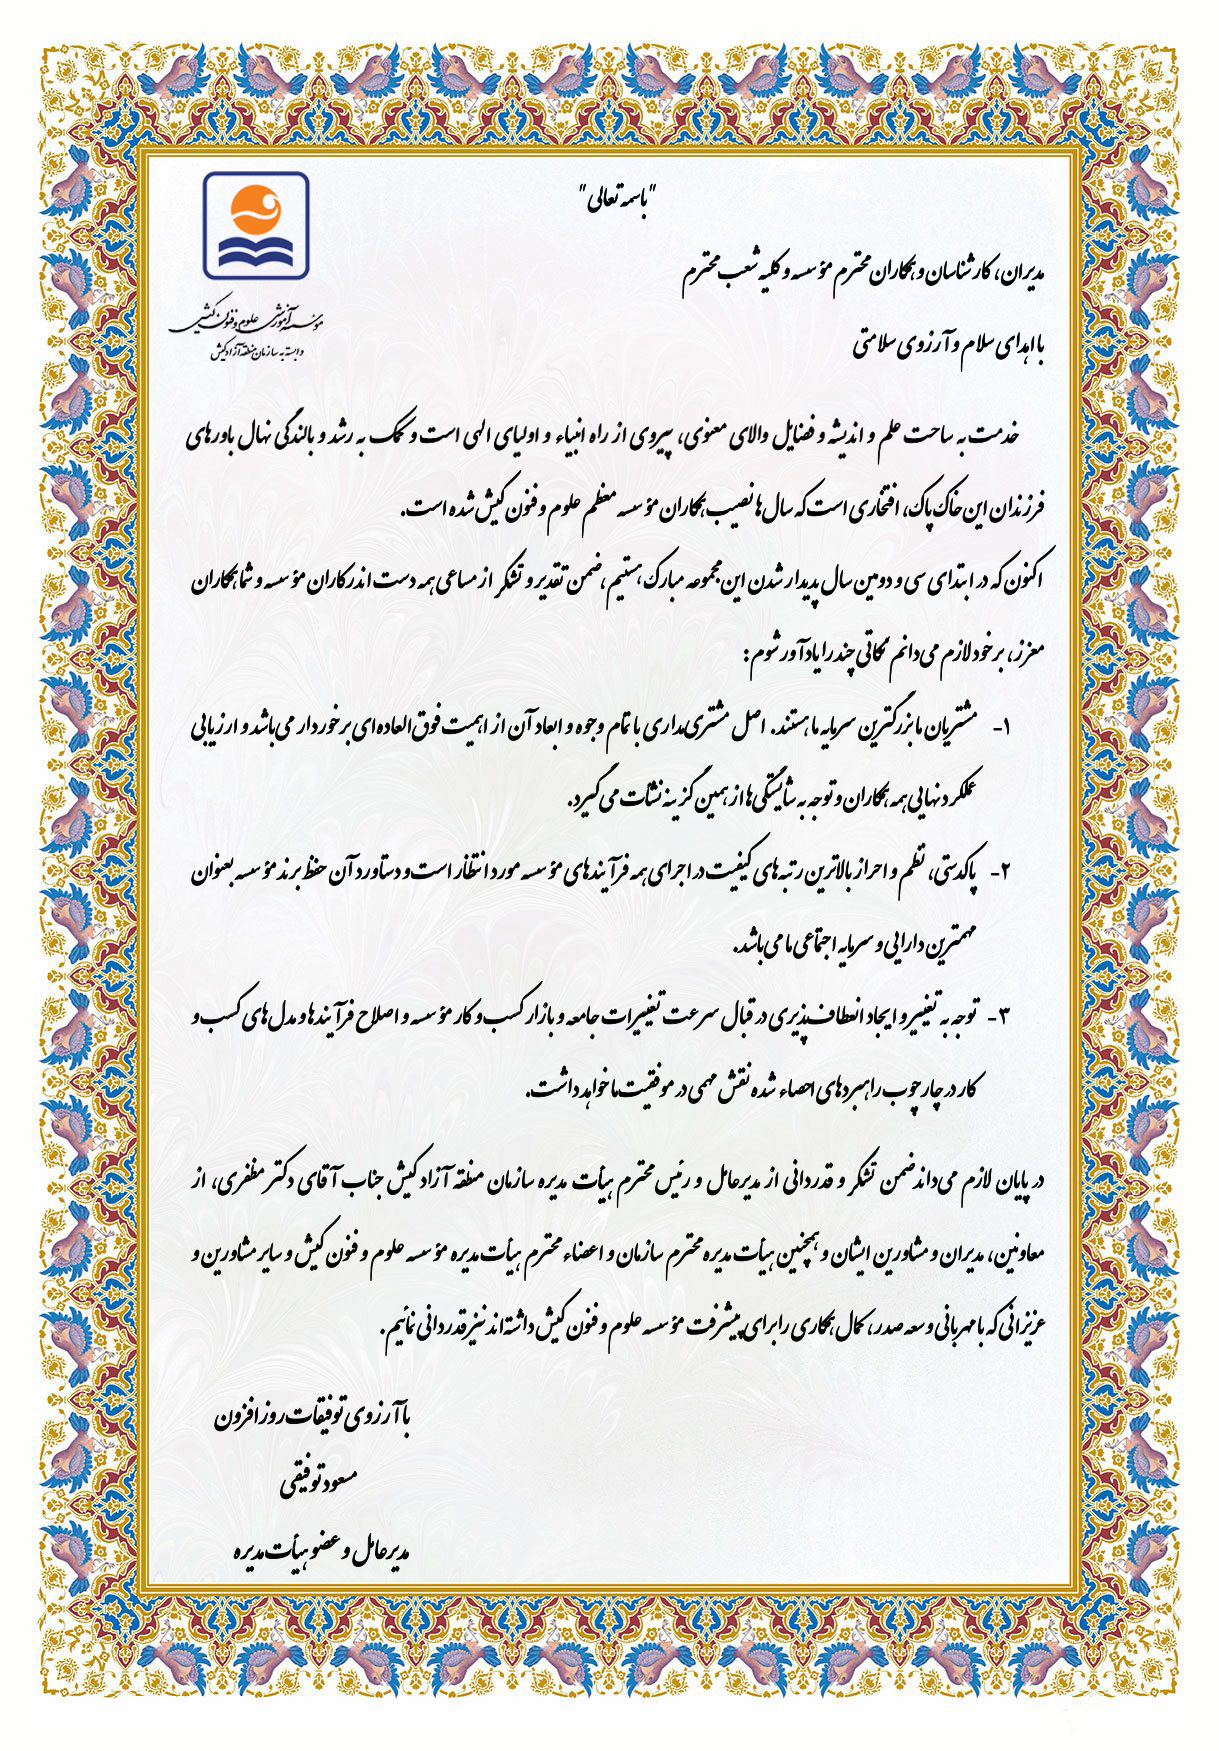 "باسمه تعالی"
موسسه آموزش علوم و فنون کیش
وابسته به سازمان منطقه آزاد کیش
مدیران، کارشناسان و همکاران محترم مؤسسه و کلیه شعب محترم
با اهدای سلام و آرزوی سلامتی
خدمت به ساحت علم و اندیشه و فضایل والای معنوی، پیروی از راه انبیاء و اولیای الهی است و کمک به رشد و بالندگی نهال باورهای
فرزندان این خاک پاک، افتخاری است که سال‌ها نصیب همکاران مؤسسه معظم علوم و فنون کیش شده است.
اکنون که در ابتدای سی و دومین سال پدیدار شدن این مجموعه مبارک هستیم، ضمن تقدیر و تشکر از مساعی همه دست اندرکاران مؤسسه و شما همکاران
معزز، بر خود لازم می‌دانم نکاتی چند را یادآور شوم:
۱- مشتریان ما بزرگترین سرمایه ما هستند. اصل مشتری‌مداری با تمام وجوه و ابعاد آن از اهمیت فوق‌العاده‌ای برخوردار می‌باشد و ارزیابی
عملکرد نهایی همه همکاران و توجه به شایستگی‌ها از همین گزینه نشأت می‌گیرد.
۲- پاکدستی، نظم و احراز بالاترین رتبه‌های کیفیت در اجرای همه فرآیندهای مؤسسه مورد انتظار است و دستاورد آن حفظ برند مؤسسه بعنوان
مهمترین دارایی و سرمایه اجتماعی ما می‌باشد.
۳- توجه به تغییر و ایجاد انعطاف‌پذیری در قبال سرعت تغییرات جامعه و بازار کسب و کار مؤسسه و اصلاح فرآیندها و مدل‌های کسب و
کار در چارچوب راهبردهای احصاء شده نقش مهمی در موفقیت ما خواهد داشت.
در پایان لازم می‌داند ضمن تشکر و قدردانی از مدیرعامل و رئیس محترم هیأت مدیره سازمان منطقه آزاد کیش جناب آقای دکتر مظفری، از
معاونین، مدیران و مشاورین ایشان و همچنین هیأت مدیره محترم سازمان و اعضاء محترم هیأت مدیره مؤسسه علوم و فنون کیش و سایر مشاورین و
عزیزانی که با مهربانی و سعه صدر، کمال همکاری را برای پیشرفت مؤسسه علوم و فنون کیش داشته‌اند نیز قدردانی نمائیم.
با آرزوی توفیقات روز افزون
مسعود توفیقی
مدیرعامل و عضو هیأت مدیره